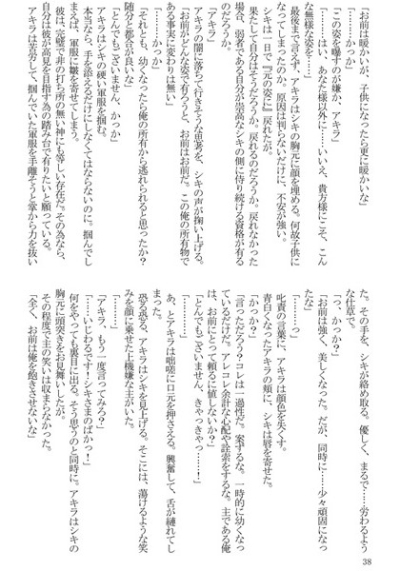 「お前は暖いが、子供になったら更に暖かいな」
「……かっか」
「この姿を曝すのは嫌か、アキラ」
「……はい。あなた様以外に……いいえ、貴方様にこそ、こん
な無様な姿を……」
最後まで言えず、アキラはシキの胸元に顔を埋める。何故子供に
なってしまったのか、原因は判らないだけに、不安が強い。
シキは一日で〝元の姿に〟戻れたが、
果たして自分はそうだろうか。戻れるのだろうか。戻れなかった
場合、弱者である自分が崇高なシキの側に侍り続ける資格が有る
のだろうか。
「アキラ」
アキラの闇に落ちて行きそうな思考を、シキの声が掬い上げる。
「お前がどんな姿で有ろうと、お前はお前だ。この俺の所有物で
ある事実に変わりは無い」
「……かっか」
「それとも、幼くなったら俺の所有から逃れられると思ったか？
随分と都合が良いな」
「とんでもございません、かっか」
アキラはシキの硬い軍服を掴む。
本当なら、手を添えるだけにしなくてはならないのに。掴んでし
まえば、軍服に皺を寄せてしまう。
彼は、完璧で非の打ち所の無い神にも等しい存在だ。その為なら、
自分は彼が高見を目指す為の踏み台で有りたいと願っている。
アキラは苦労して、掴んでいた軍服を手離そうと掌から力を抜い
た。その手を、シキが絡め取る。優しく、まるで……労わるよう
な仕草で。
「っ、かっか？」
「お前は強く、美しくなった。だが、同時に……少々頑固になっ
たな」
「………っ」
叱責の言葉に、アキラは顔色を失くす。
青白くなったアキラの頬に、シキは唇を寄せた。
「かっか？」
「言っただろう？コレは一過性だ。案ずるな。一時的に幼くなっ
ているだけだ。アレコレ余計な心配や詮索をするな。主である俺
は、お前にとって頼るに値しないか？」
「とんでもございません、きゃっきゃっ……！」
あ、とアキラは咄嗟に口元を押さえる。興奮して、舌が縺れてし
まった。
恐る恐る、アキラはシキを見上げる。そこには、蕩けるような笑
みを顔に乗せた上機嫌な主がいた。
「………」
「アキラ、もう一度言ってみろ？」
「……いじわるです！シキさまのばかっ！」
何をやっても裏目に出る。そう思うのと同時に、アキラはシキの
胸元に頭突きをお見舞いしたが、
その程度で主の笑いは収まらなかった。
「全く、お前は俺を飽きさせないな」
38